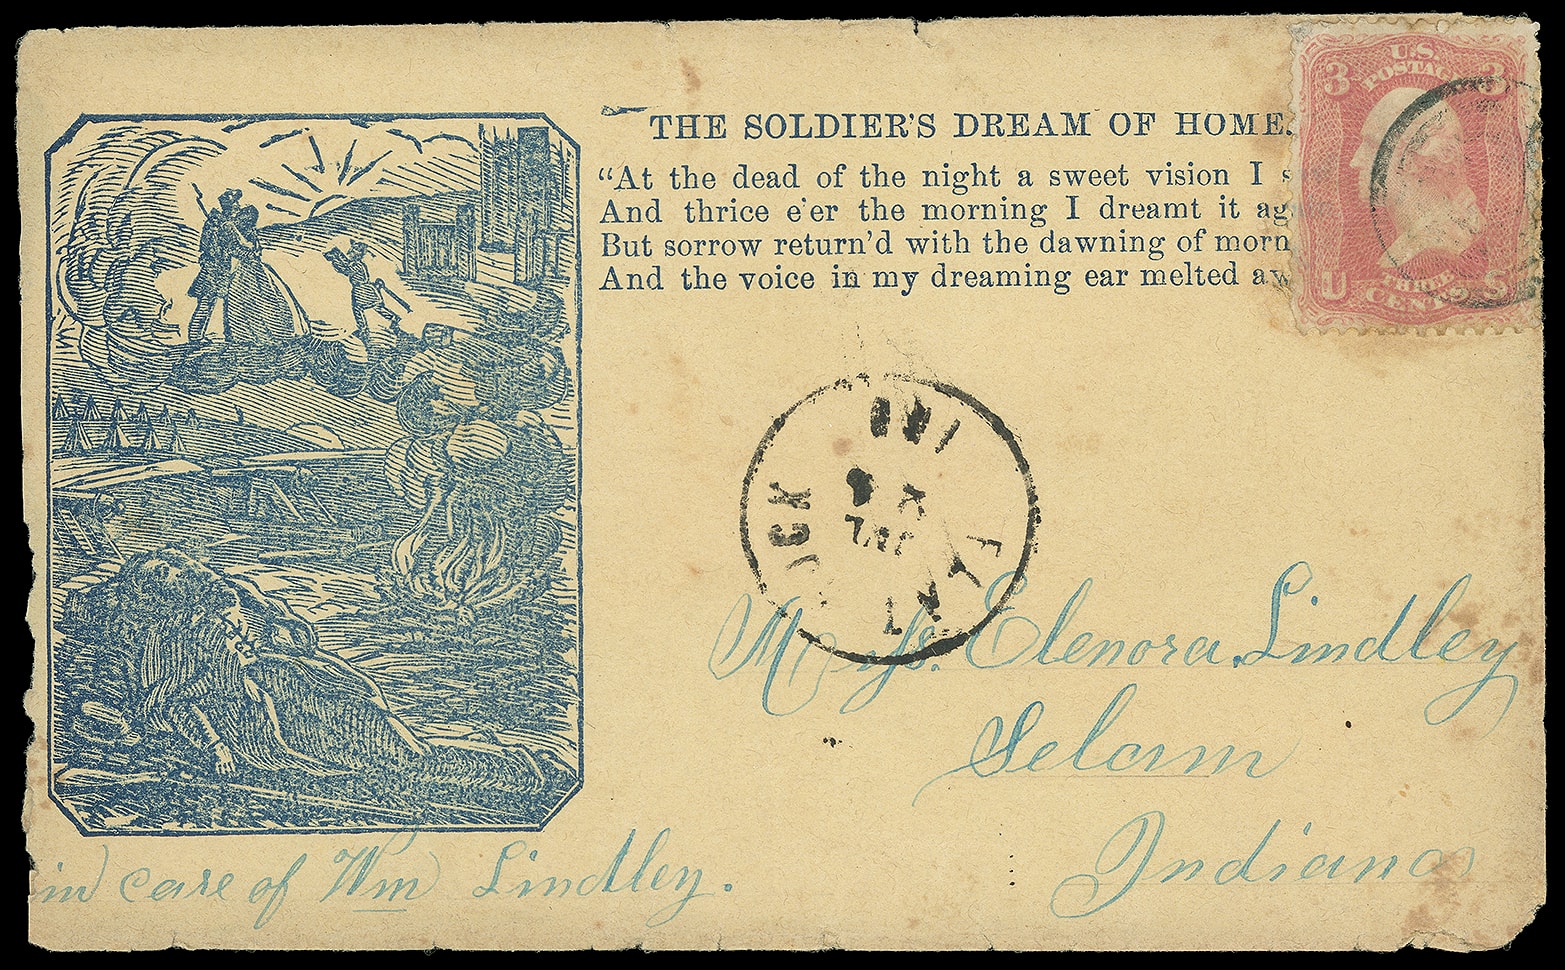 THE SOLDIER'S DREAM OF HOME.
“At the dead of the night a sweet vision I
And thrice e'er the morning I dreamt it
But sorrow return'd with the dawning of morn
And the voice in my dreaming ear melted
U.S.
POSTAGE
3 3
U S
THREE
CENTS
Miss. Elenora. Lindley
Selam
Indiana
in care of Wm Lindley.